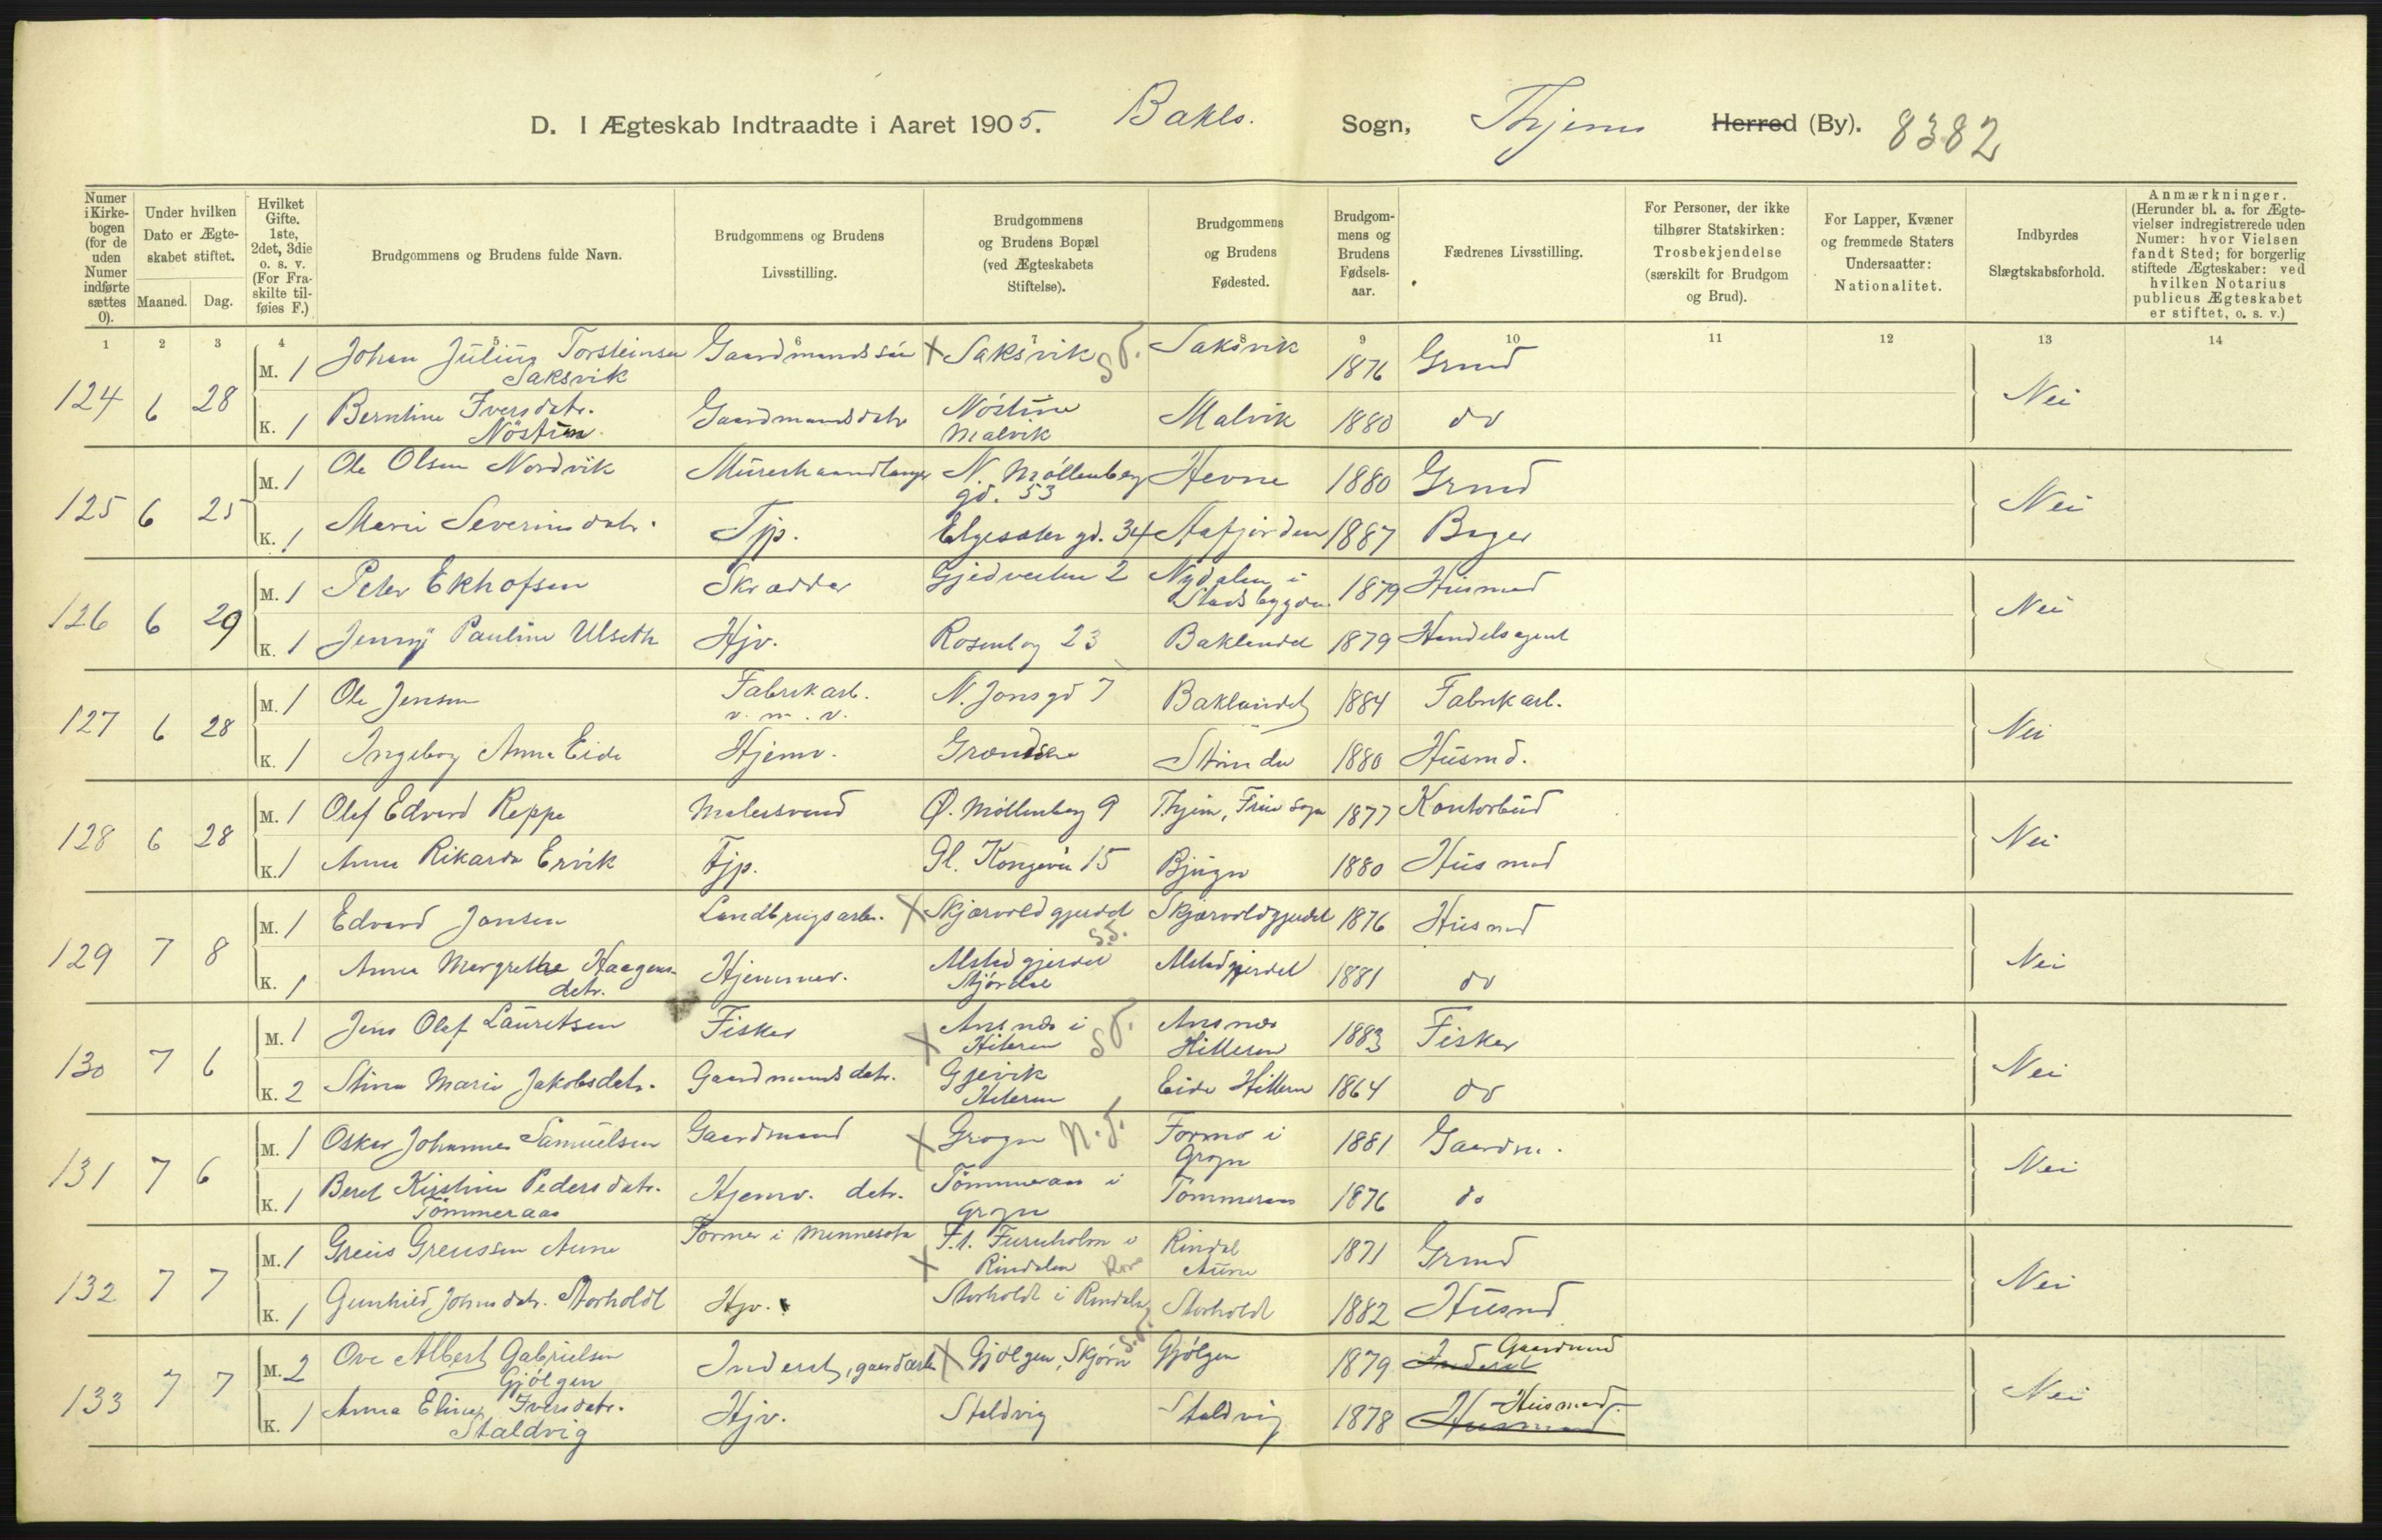 D. I Ægteskab Indtraadte i Aaret 1905. Bakls. Sogn, Thjems Herred (By). 8382
Numer i Kirkebogen (for de uden Numer indførte sættes 0).
Under hvilken Dato er Ægteskabet stiftet.
Maaned. Dag.
Hvilket Gifte. 1ste, 2det, 3die o. s. v. (For Fraskilte tilføies F.)
Brudgommens og Brudens fulde Navn.
Brudgommens og Brudens Livsstilling.
Brudgommens og Brudens Bopæl (ved Ægteskabets Stiftelse).
Brudgommens og Brudens Fødested.
Brudgommens og Brudens Fødselsaar.
Fædrenes Livsstilling.
For Personer, der ikke tilhører Statskirken: Trosbekjendelse (særskilt for Brudgom og Brud).
For Lapper, Kvæner og fremmede Staters Undersaatter: Nationalitet.
Indbyrdes Slægtskabsforhold.
Anmærkninger. (Herunder bl. a. for Ægtevielser indregistrerede uden Numer: hvor Vielsen fandt Sted; for borgerlig stiftede Ægteskaber: ved hvilken Notarius publicus Ægteskabet er stiftet, o. s. v.)
1 2 3 4 5 6 7 8 9 10 11 12 13 14
124 6 28 M. 1 Johan Julius Torsteinsen Saksvik Gaardmandssøn X Saksvik S.T. Saksvik 1876 Grmd Nei
K. 1 Berntine Iversdatr. Nöstum Gaardmandsdatr Malvik Malvik 1880 do
125 6 25 M. 1 Ole Olsen Nordvik Murerhaandlanger N. Möllenberg gd. 53 Hevne 1880 Grmd Nei
K. 1 Marie Severinsdatr. Tjp. Elgesæter gd. 34 Aafjorden 1887 Bager
126 6 29 M. 1 Peter Ekhofsen Skrædder Gjedvesten 2 Nydalen i Stadsbygden 1879 Husmd Nei
K. 1 Jenny Pauline Ulseth Hjv. Rosenborg 23 Baklandet 1879 Handelsagent
127 6 28 M. 1 Ole Jensen Fabrikarb. v. m. v. N. Jonsgd 7 Baklandet 1884 Fabrikarb. Nei
K. 1 Ingeborg Anna Eide Hjemv. Grændsen Strinden 1880 Husmd.
128 6 28 M. 1 Olaf Edvard Reppe Malersvend Ø. Möllenberg 9 Thjem, Frue Sogn 1877 Kontorbud Nei
K. 1 Anna Rikarda Ervik Tjp. Gl. Kongevei 15 Bjugn 1880 Husmd
129 7 8 M. 1 Edvard Jansen Landbrugsarb. X Skjærvoldgjerdet S.T. Skjærvoldgjerdet 1876 Husmd Nei
K. 1 Anna Margrethe Haagensdatr. Hjemmev. Alstadgjerdet Stjørdal Alstadgjerdet 1881 do
130 7 6 M. 1 Jens Olaf Lauritsen Fisker X Ansnæs i Hiteren S.T. Ansnæs Hitteren 1883 Fisker Nei
K. 2 Stina Marie Jakobsdatr. Gaardmandsdatr. Gjevik Hiteren Eide Hitteren 1864 do
131 7 6 M. 1 Oskar Johannes Samuelsen Gaardmand X Grogn N.T. Formo i Grogn 1881 Gaardm. Nei
K. 1 Beret Kirstine Pedersdatr. Tömmeraas Hjemv. datr. Tömmeraas i Grogn Tömmeraas 1876 do
132 7 7 M. 1 Greus Greussen Aune Farmer i Minnesota X F.t. Furuholm i Rindalen Rom Rindal Aune 1871 Grmd Nei
K. 1 Gunhild Johnsdatr. Storholdt Hjv. Storholdt i Rindalen Storholdt 1882 Husmd
133 7 7 M. 2 Ove Albert Gabrielsen Gjölgen Inderst, gaardarb X Gjölgen, Skjørn S.T. Gjölgen 1879 Inderst Gaardmd Nei
K. 1 Anna Elina Iversdatr. Staldvig Hjv. Staldvig Staldvig 1878 Husmand Husmand